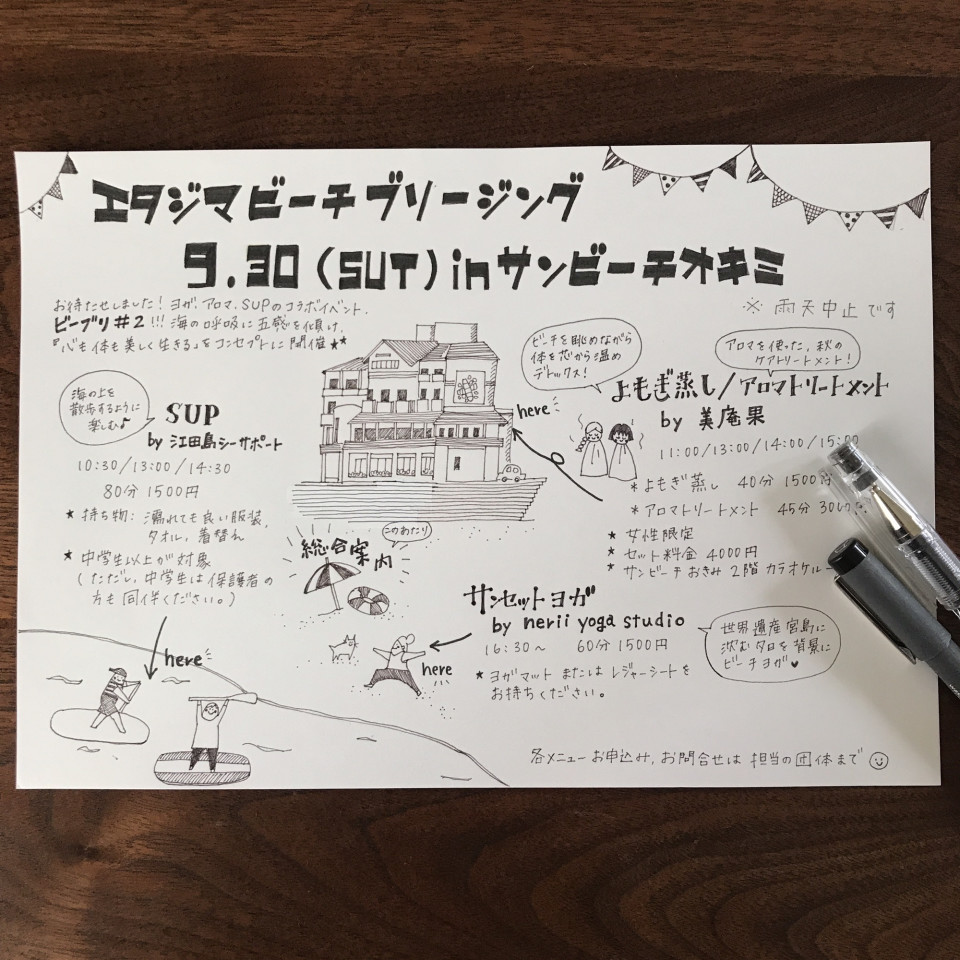 エタジマビーチブリージング
9.30(SUT)inサンビーチオキミ
お待たせしました!ヨガ、アロマ、SUPのコラボイベント、
ビーブリ#2!!!海の呼吸に五感を傾け、
『心も体も美しく生きる』をコンセプトに開催★★
※雨天中止です
海の上を
散歩するように
楽しむ♪
SUP
by 江田島シーサポート
10:30/13:00/14:30
80分 1500円
★持ち物:濡れても良い服装、
タオル、着替え
★中学生以上が対象
(ただし、中学生は保護者の
方も同伴ください。)
here
ビーチを眺めながら
体を芯から温め
デトックス!
アロマを使った、秋の
ケアトリートメント!
よもぎ蒸し/アロマトリートメント
by 美庵果
here
11:00/13:00/14:00/15:00
*よもぎ蒸し 40分 1500円
*アロマトリートメント 45分 300
★女性限定
★セット料金 4000円
★サンビーチおきみ2階カラオケル
このあたり
総合案内
サンセットヨガ
by nerii yoga studio
16:30〜 60分 1500円
★ヨガマットまたはレジャーシートを
お持ちください。
here
世界遺産宮島に
沈む夕日を背景に
ビーチヨガ♥
各メニューお申込み、お問合せは担当の団体まで☺